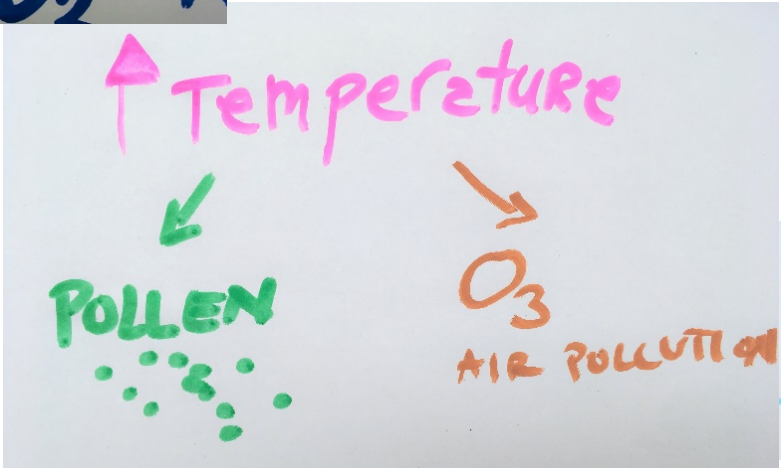 ↑ Temperature
POLLEN
O3
AIR POLLUTION